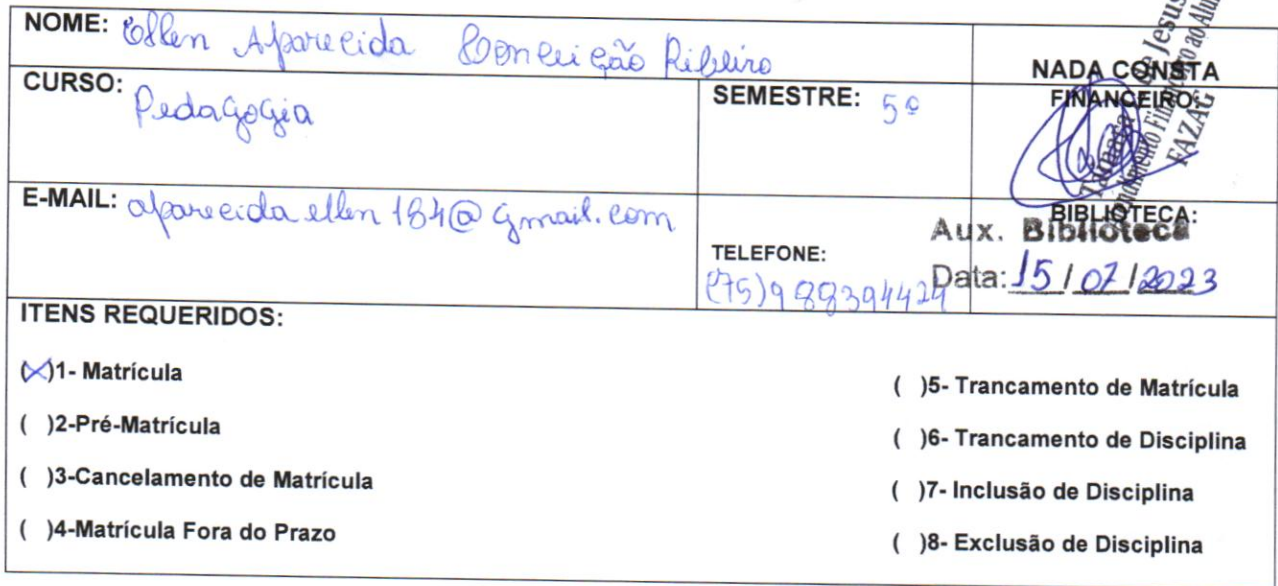 NOME: Ellen Aparecida Conceição Ribeiro
CURSO: Pedagogia
SEMESTRE: 5º
NADA CONSTA
FINANCEIRO:
de Jesus
Financeiro ao Alun
FAZAG
E-MAIL: aparecidaellen184@gmail.com
TELEFONE:
(75)988394424
BIBLIOTECA:
Aux. Biblioteca
Data: 15/07/2023
ITENS REQUERIDOS:
(X)1- Matrícula
( )2-Pré-Matrícula
( )3-Cancelamento de Matrícula
( )4-Matrícula Fora do Prazo
( )5- Trancamento de Matrícula
( )6- Trancamento de Disciplina
( )7- Inclusão de Disciplina
( )8- Exclusão de Disciplina